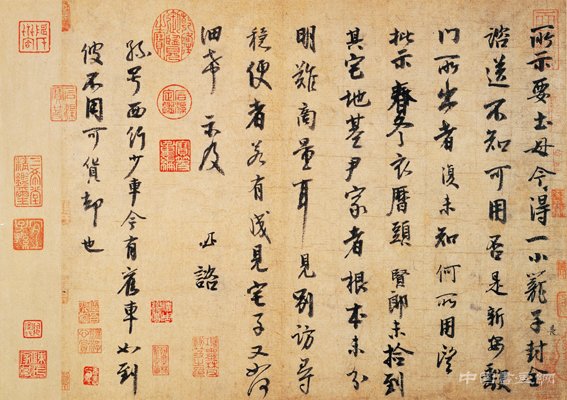 所示要土母今得一小籠子封全
諮送不知可用否是新安缺
門所出者復未知何所用望
批示春冬衣曆頭賢郎未撿到
其宅地基尹家者根本未分
明難商量耳見別訪尋
穩便者若有成見宅子又如何
細希 示及 諮
孫号西行少車今有舊車如到
彼不用可貨却也